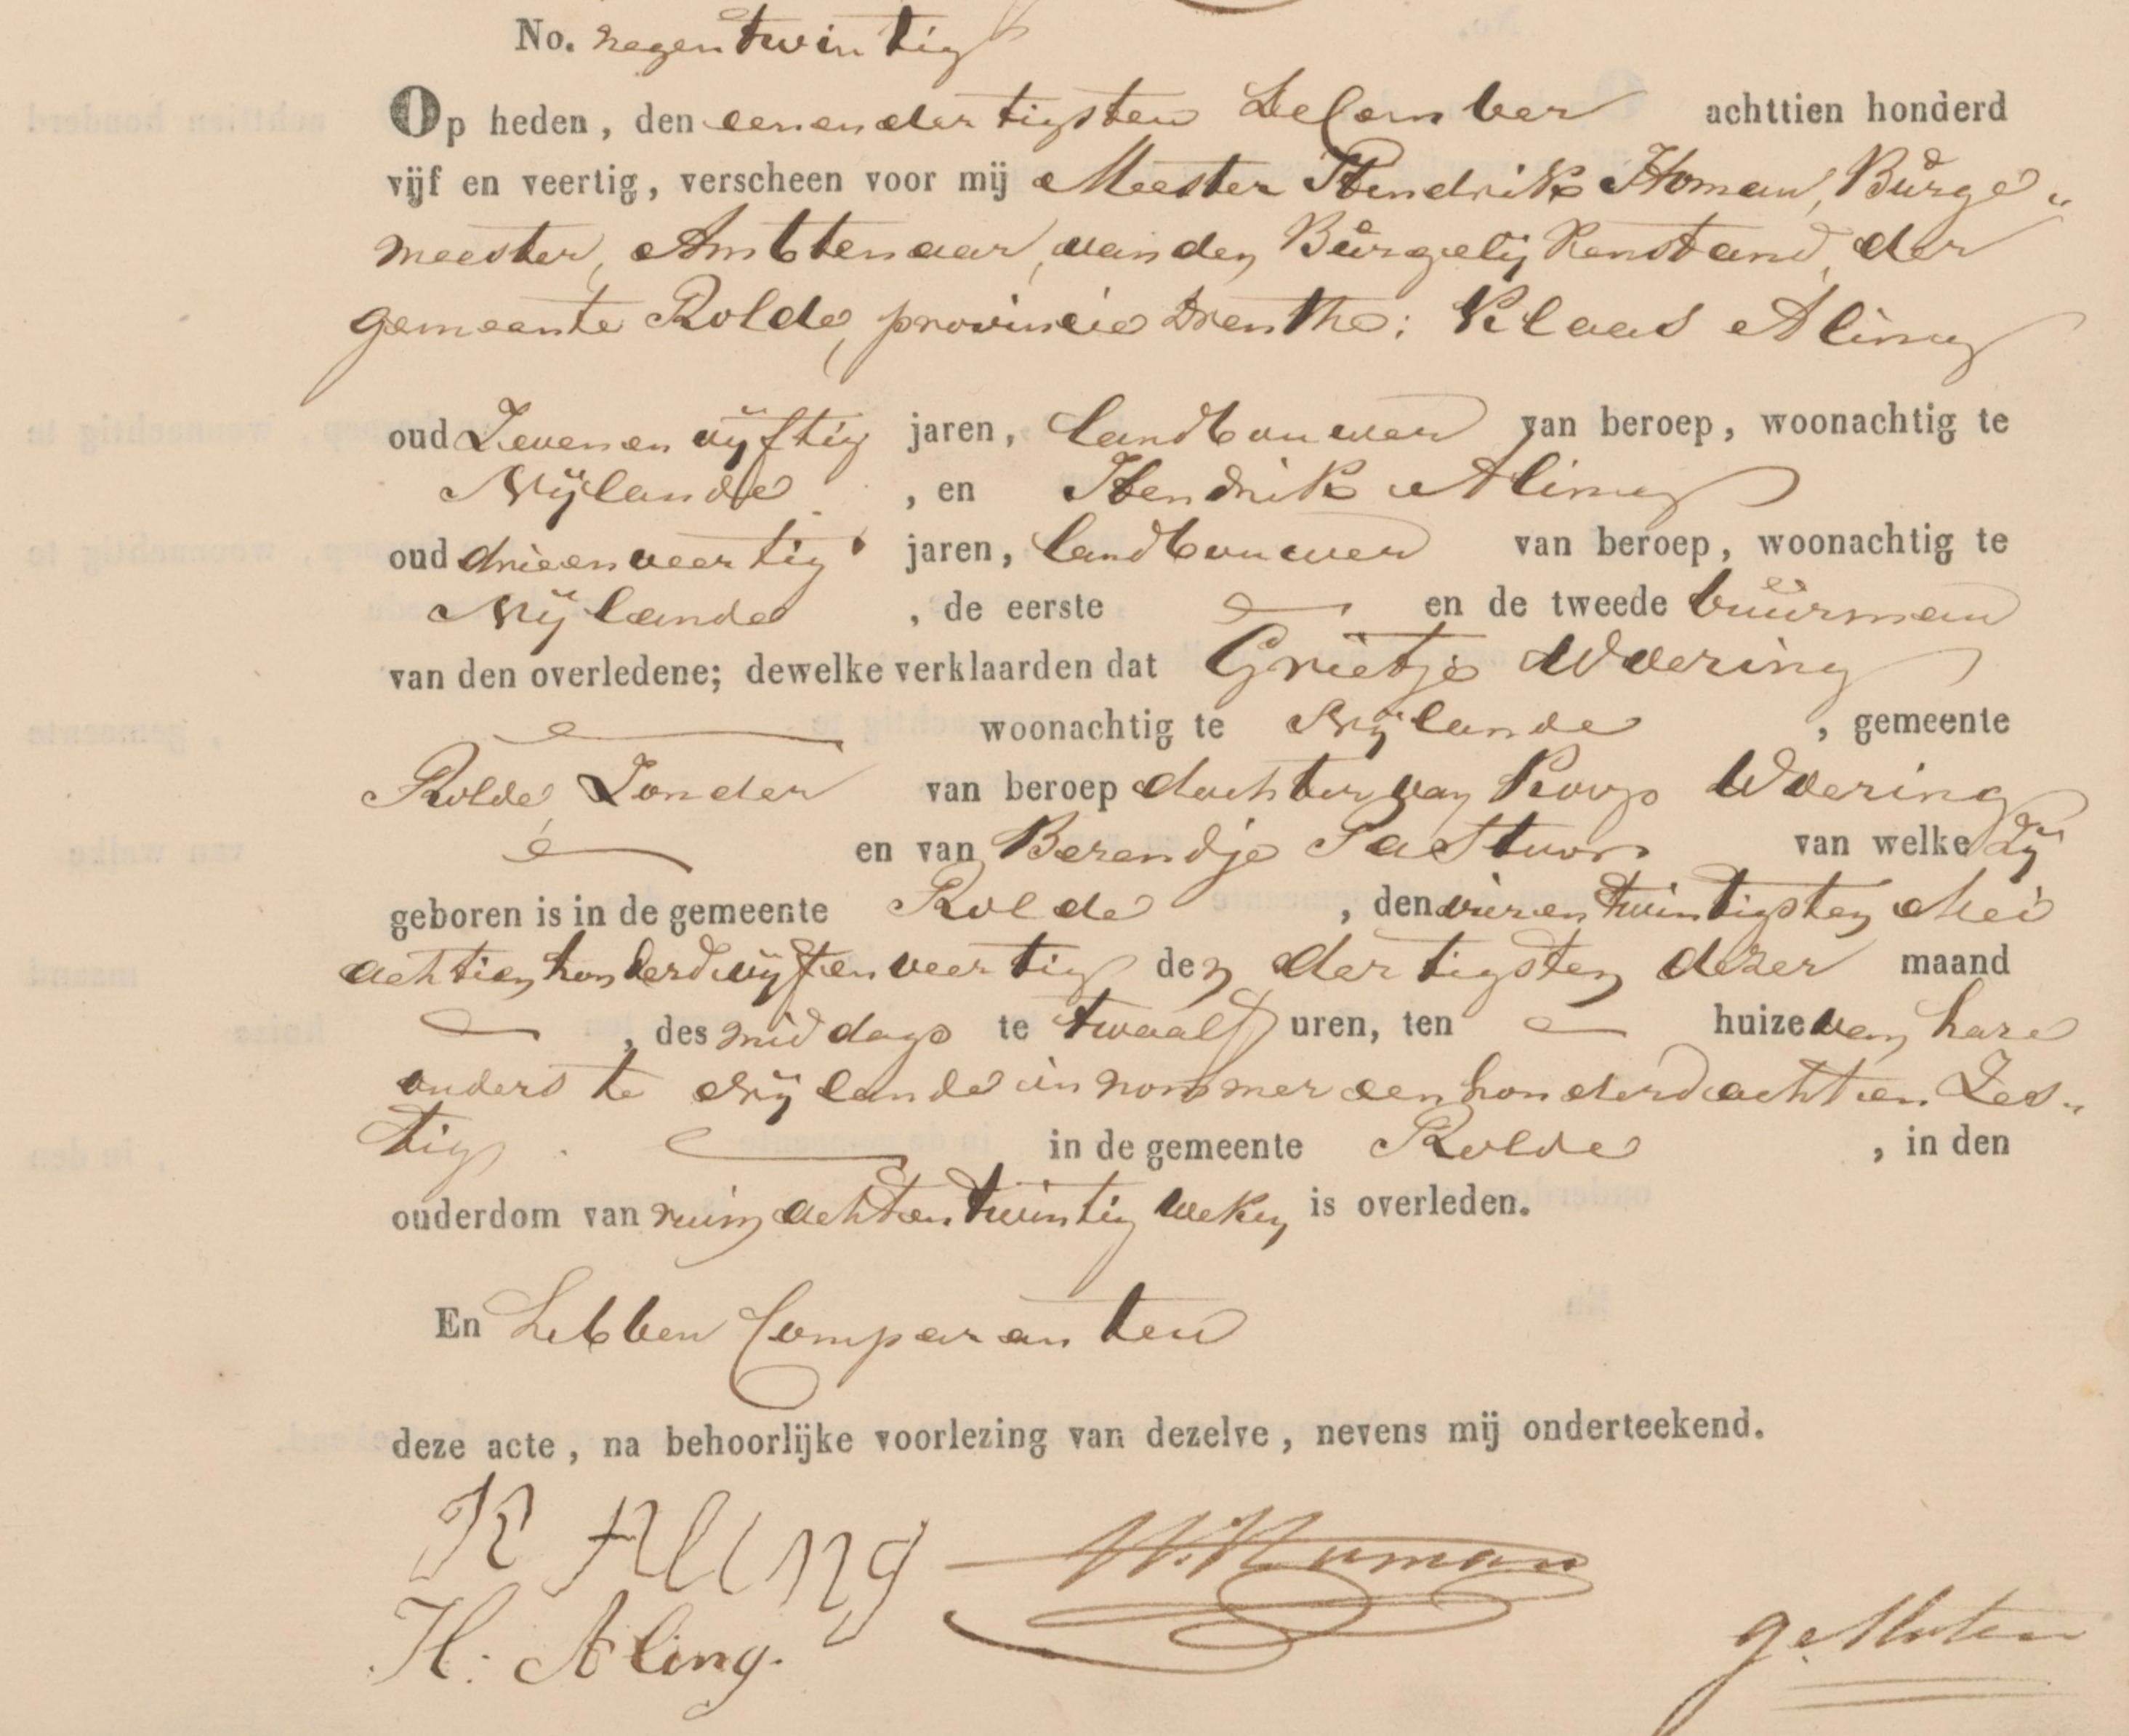 No. negentwintig
Op heden, den eenendertigsten December achttien honderd
vijf en veertig, verscheen voor mij Meester Hendrik Homan, Burge„
meester, Ambtenaar, van den Burgelijkenstand, der
gemeente Rolde, provincie Drenthe; Klaas Aling
oud Zevenenvijftig jaren, landbouwer van beroep, woonachtig te
Nijlande , en Hendrik Aling
oud drieenveertig jaren, landbouwer van beroep, woonachtig te
Nijlande , de eerste — en de tweede buurman
van den overledene; dewelke verklaarden dat Grietje Woering
— woonachtig te Nijlande , gemeente
Rolde, Zonder van beroep dochter van Roop Woering
— en van Berendje Pastuur van welke Zij
geboren is in de gemeente Rolde , den vierentwintigsten Mei
achtienhonderdvijfenveertig den dertigsten dezer maand
— , des middags te twaalf uren, ten — huize van hare
ouders te Nijlande in nommer eenhonderdachtenZes„
tig — in de gemeente Rolde , in den
ouderdom van ruim achtentwintig weken is overleden.
En hebben Comparanten
deze acte, na behoorlijke voorlezing van dezelve, nevens mij onderteekend.
K Aling
H. Homan
H. Aling.
gesloten